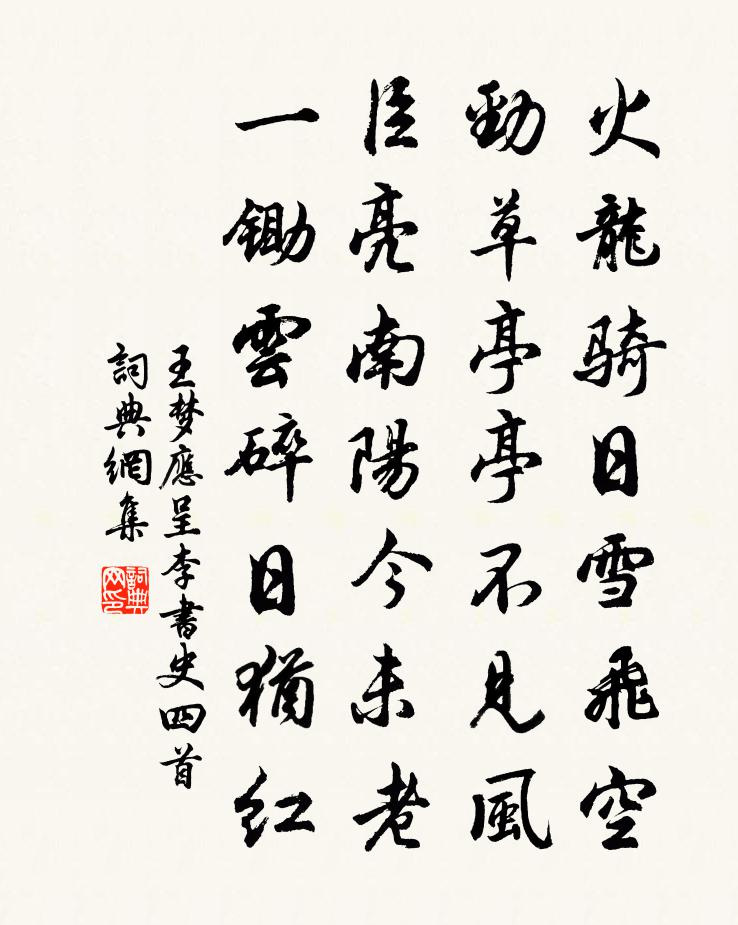 火龍骑日雪飛空
勁草亭亭不見風
臣亮南陽今未老
一鋤雲碎日猶红
王梦應呈李書史四首
詞典網集
詞典网印